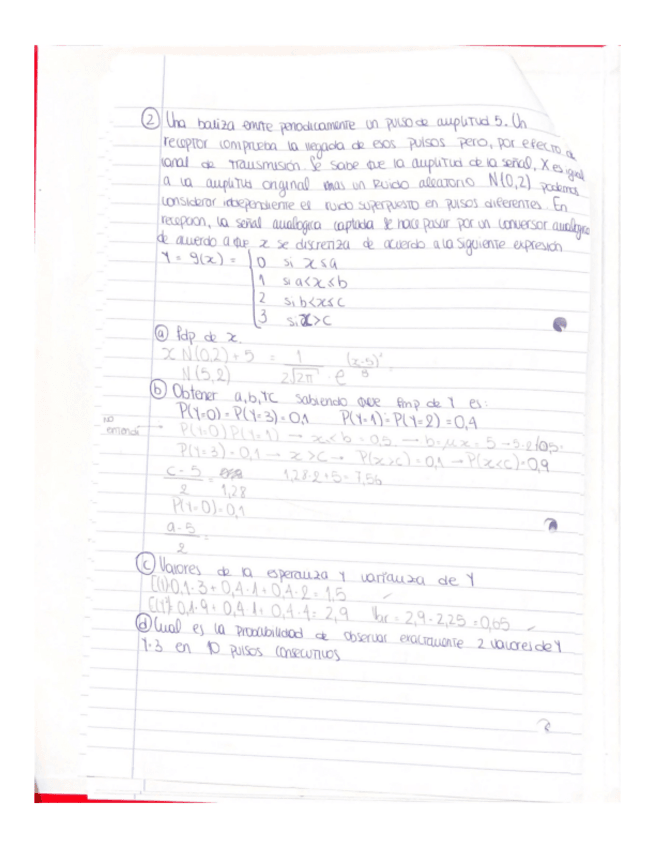 ② Una baliza emite periodicamente un pulso de amplitud 5. Un
receptor comprueba la llegada de esos pulsos pero, por efecto d
canal de transmisión se sabe que la amplitud de la señal, X es igual
a la amplitud original mas un Ruido aleatorio N(0,2) podemos
considerar independiente el ruido superpuesto en pulsos diferentes. En
recepcion, la señal analogica captada se hace pasar por un conversor analogico
de acuerdo a que x se discretiza de acuerdo a la siguiente expresión
Y = g(x) = { 0 si x≤a
1 si a<x≤b
2 si b<x≤c
3 si x>c
ⓐ fdp de x.
x N(0,2)+5 = 1/(2√2π) · e^(x-5)²/8
N(5,2)
ⓑ Obtener a,b,yc sabiendo que fmp de Y es:
P(Y=0) = P(Y=3)=0,1 P(Y=1)=P(Y=2)=0,4
no entendí → P(Y=0) P(Y=1) → x<b = 0,5 → b=μx = 5
P(Y=3)=0,1 → x>c → P(x>c)=0,1 → P(x<c)=0,9
(c-5)/2 = 1,28 1,28·2+5=7,56
P(Y=0)=0,1
(a-5)/2 =
ⓒ Valores de la esperanza y varianza de Y
0,1·3+0,4·1+0,4·2=1,5 ✓
0,1·9+0,4·1+0,4·4=2,9 Var=2,9-2,25=0,65 ✓
ⓓ Cual es la probabilidad de observar exactamente 2 valores de Y
Y=3 en 10 pulsos consecutivos